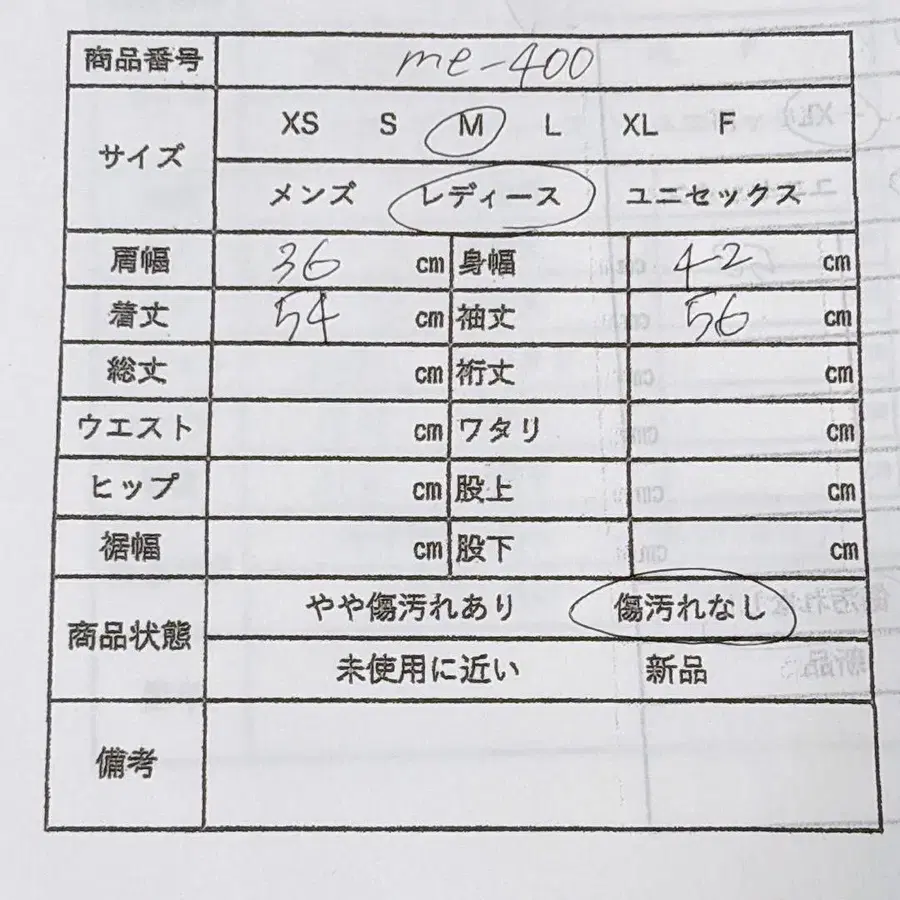 商品番号 me-400
サイズ XS S M L XL F
メンズ レディース ユニセックス
肩幅 36 cm 身幅 42 cm
着丈 54 cm 袖丈 56 cm
総丈 cm 裄丈 cm
ウエスト cm ワタリ cm
ヒップ cm 股上 cm
裾幅 cm 股下 cm
商品状態 やや傷汚れあり 傷汚れなし
未使用に近い 新品
備考